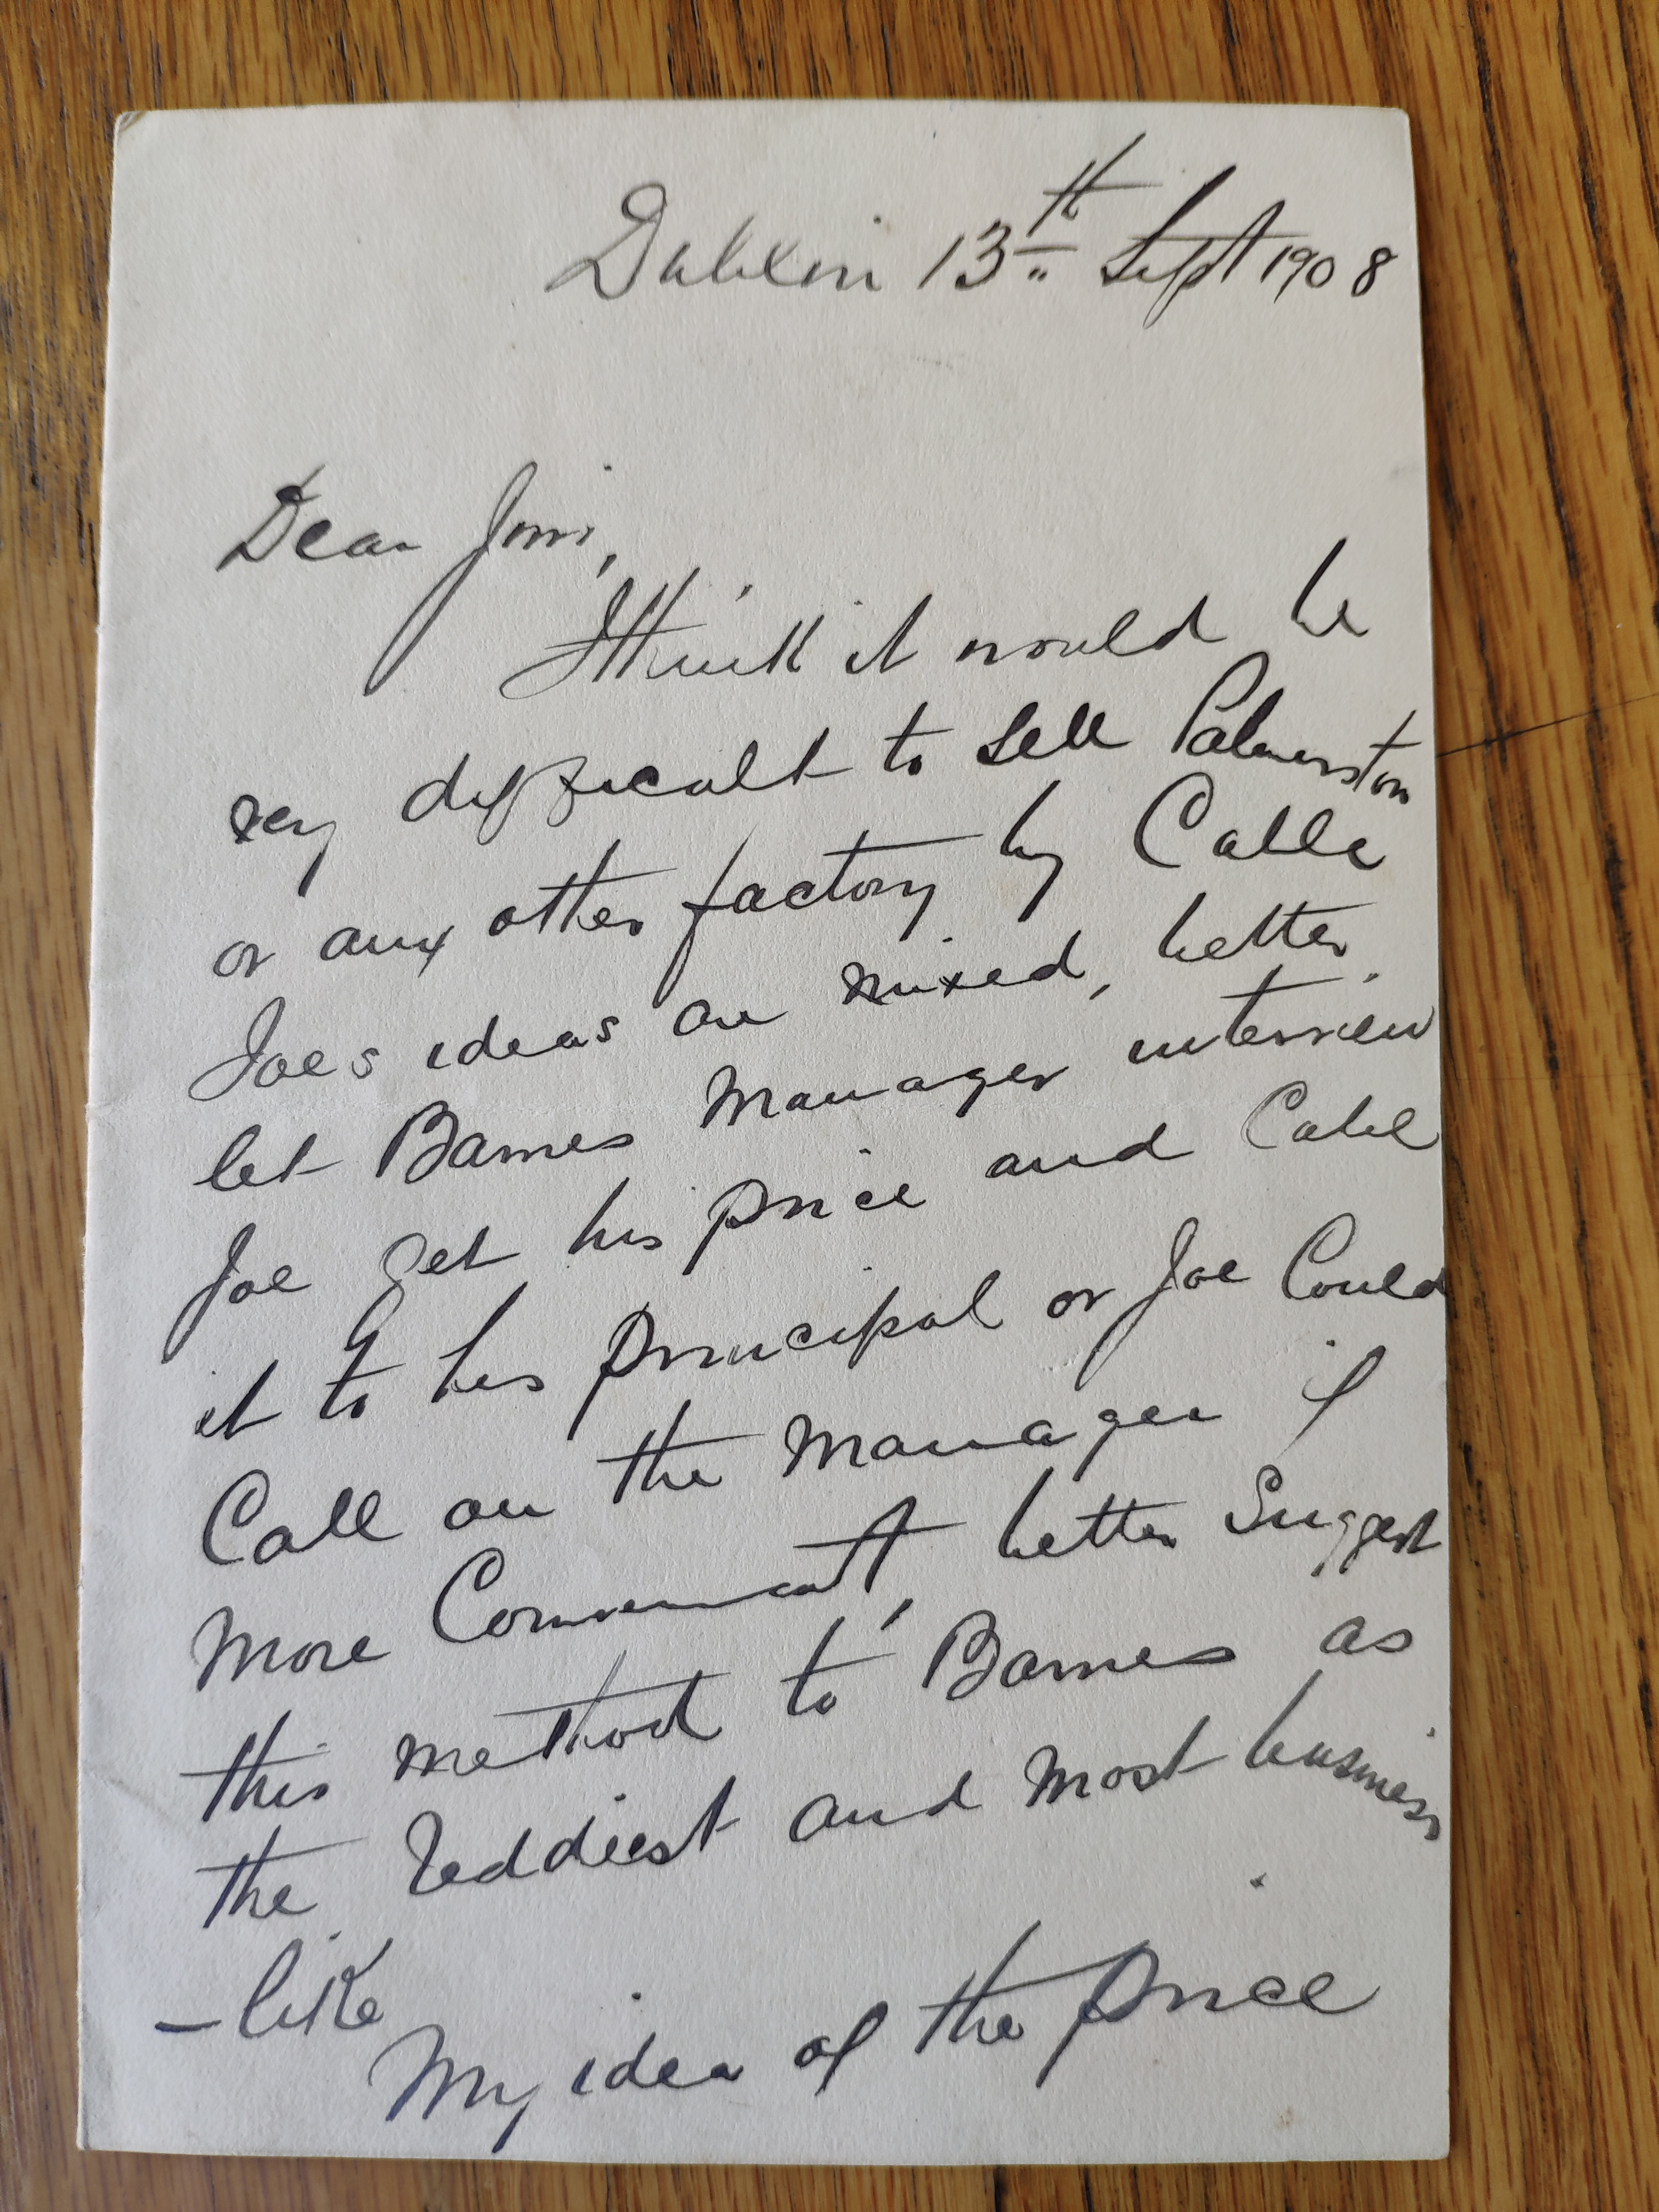 Dublin 13th Sept 1908
Dear Jim,
I think it would be
very difficult to sell Palmerston
or any other factory by Cable
Joes ideas are mixed, better
let Barnes Manager interview
Joe get his price and Cable
it to his principal or Joe Could
Call on the Manager if
more Convenient, better Suggest
this method to Barnes as
the reddiest and most business
- like
My idea of the price